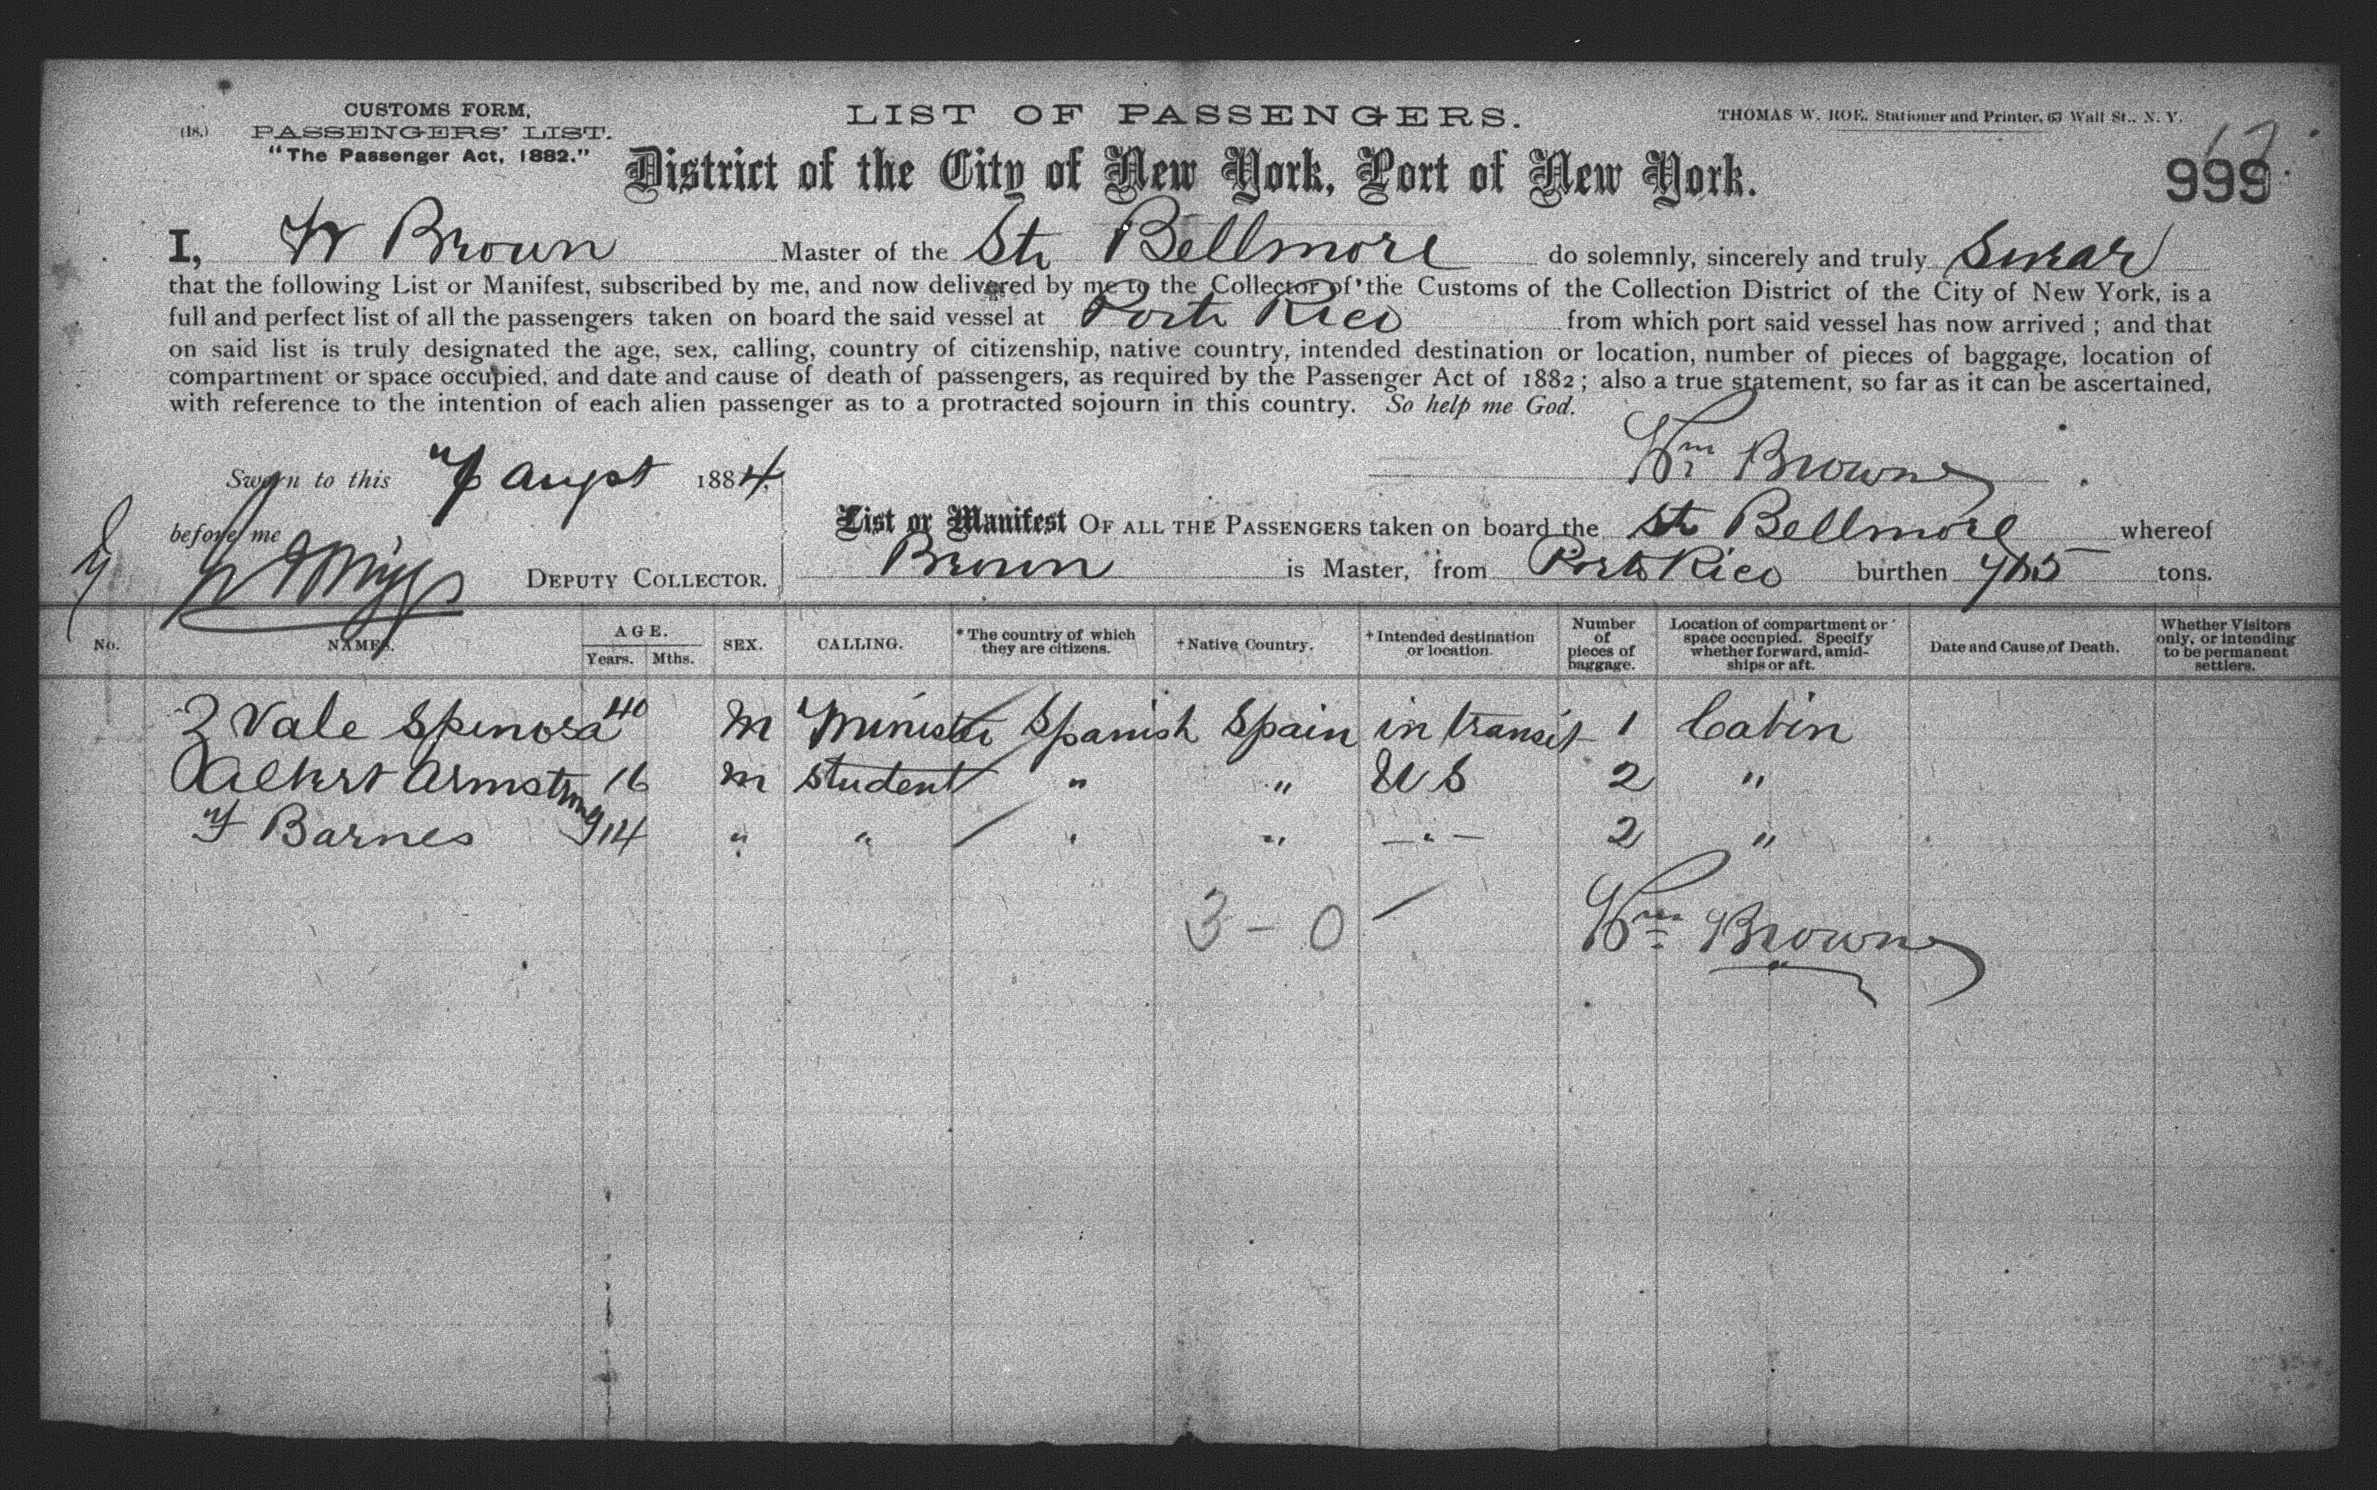 CUSTOMS FORM,
(18.) PASSENGERS' LIST.
"The Passenger Act, 1882."
LIST OF PASSENGERS.
THOMAS W. ROE, Stationer and Printer, 63 Wall St., N. Y.
District of the City of New York, Port of New York.
999
I, W Brown Master of the Str Bellmore do solemnly, sincerely and truly Swear
that the following List or Manifest, subscribed by me, and now delivered by me to the Collector of the Customs of the Collection District of the City of New York, is a
full and perfect list of all the passengers taken on board the said vessel at Porto Rico from which port said vessel has now arrived ; and that
on said list is truly designated the age, sex, calling, country of citizenship, native country, intended destination or location, number of pieces of baggage, location of
compartment or space occupied, and date and cause of death of passengers, as required by the Passenger Act of 1882 ; also a true statement, so far as it can be ascertained,
with reference to the intention of each alien passenger as to a protracted sojourn in this country. So help me God.
Wm Browne
Sworn to this 7 Augst 1884,
before me
DEPUTY COLLECTOR.
List or Manifest OF ALL THE PASSENGERS taken on board the Str Bellmore whereof
Brown is Master, from Porto Rico burthen tons.
No. NAMES. AGE. Years. Mths. SEX. CALLING. *The country of which they are citizens. †Native Country. †Intended destination or location. Number of pieces of baggage. Location of compartment or space occupied. Specify whether forward, amidships or aft. Date and Cause of Death. Whether Visitors only, or intending to be permanent settlers.
Vale Spinosa 40 M Minister Spanish Spain in transit 1 Cabin
Albert Armstrong 16 m student " " U S 2 "
Barnes 14 " " " " — " — 2 "
3 - 0
Wm Browne